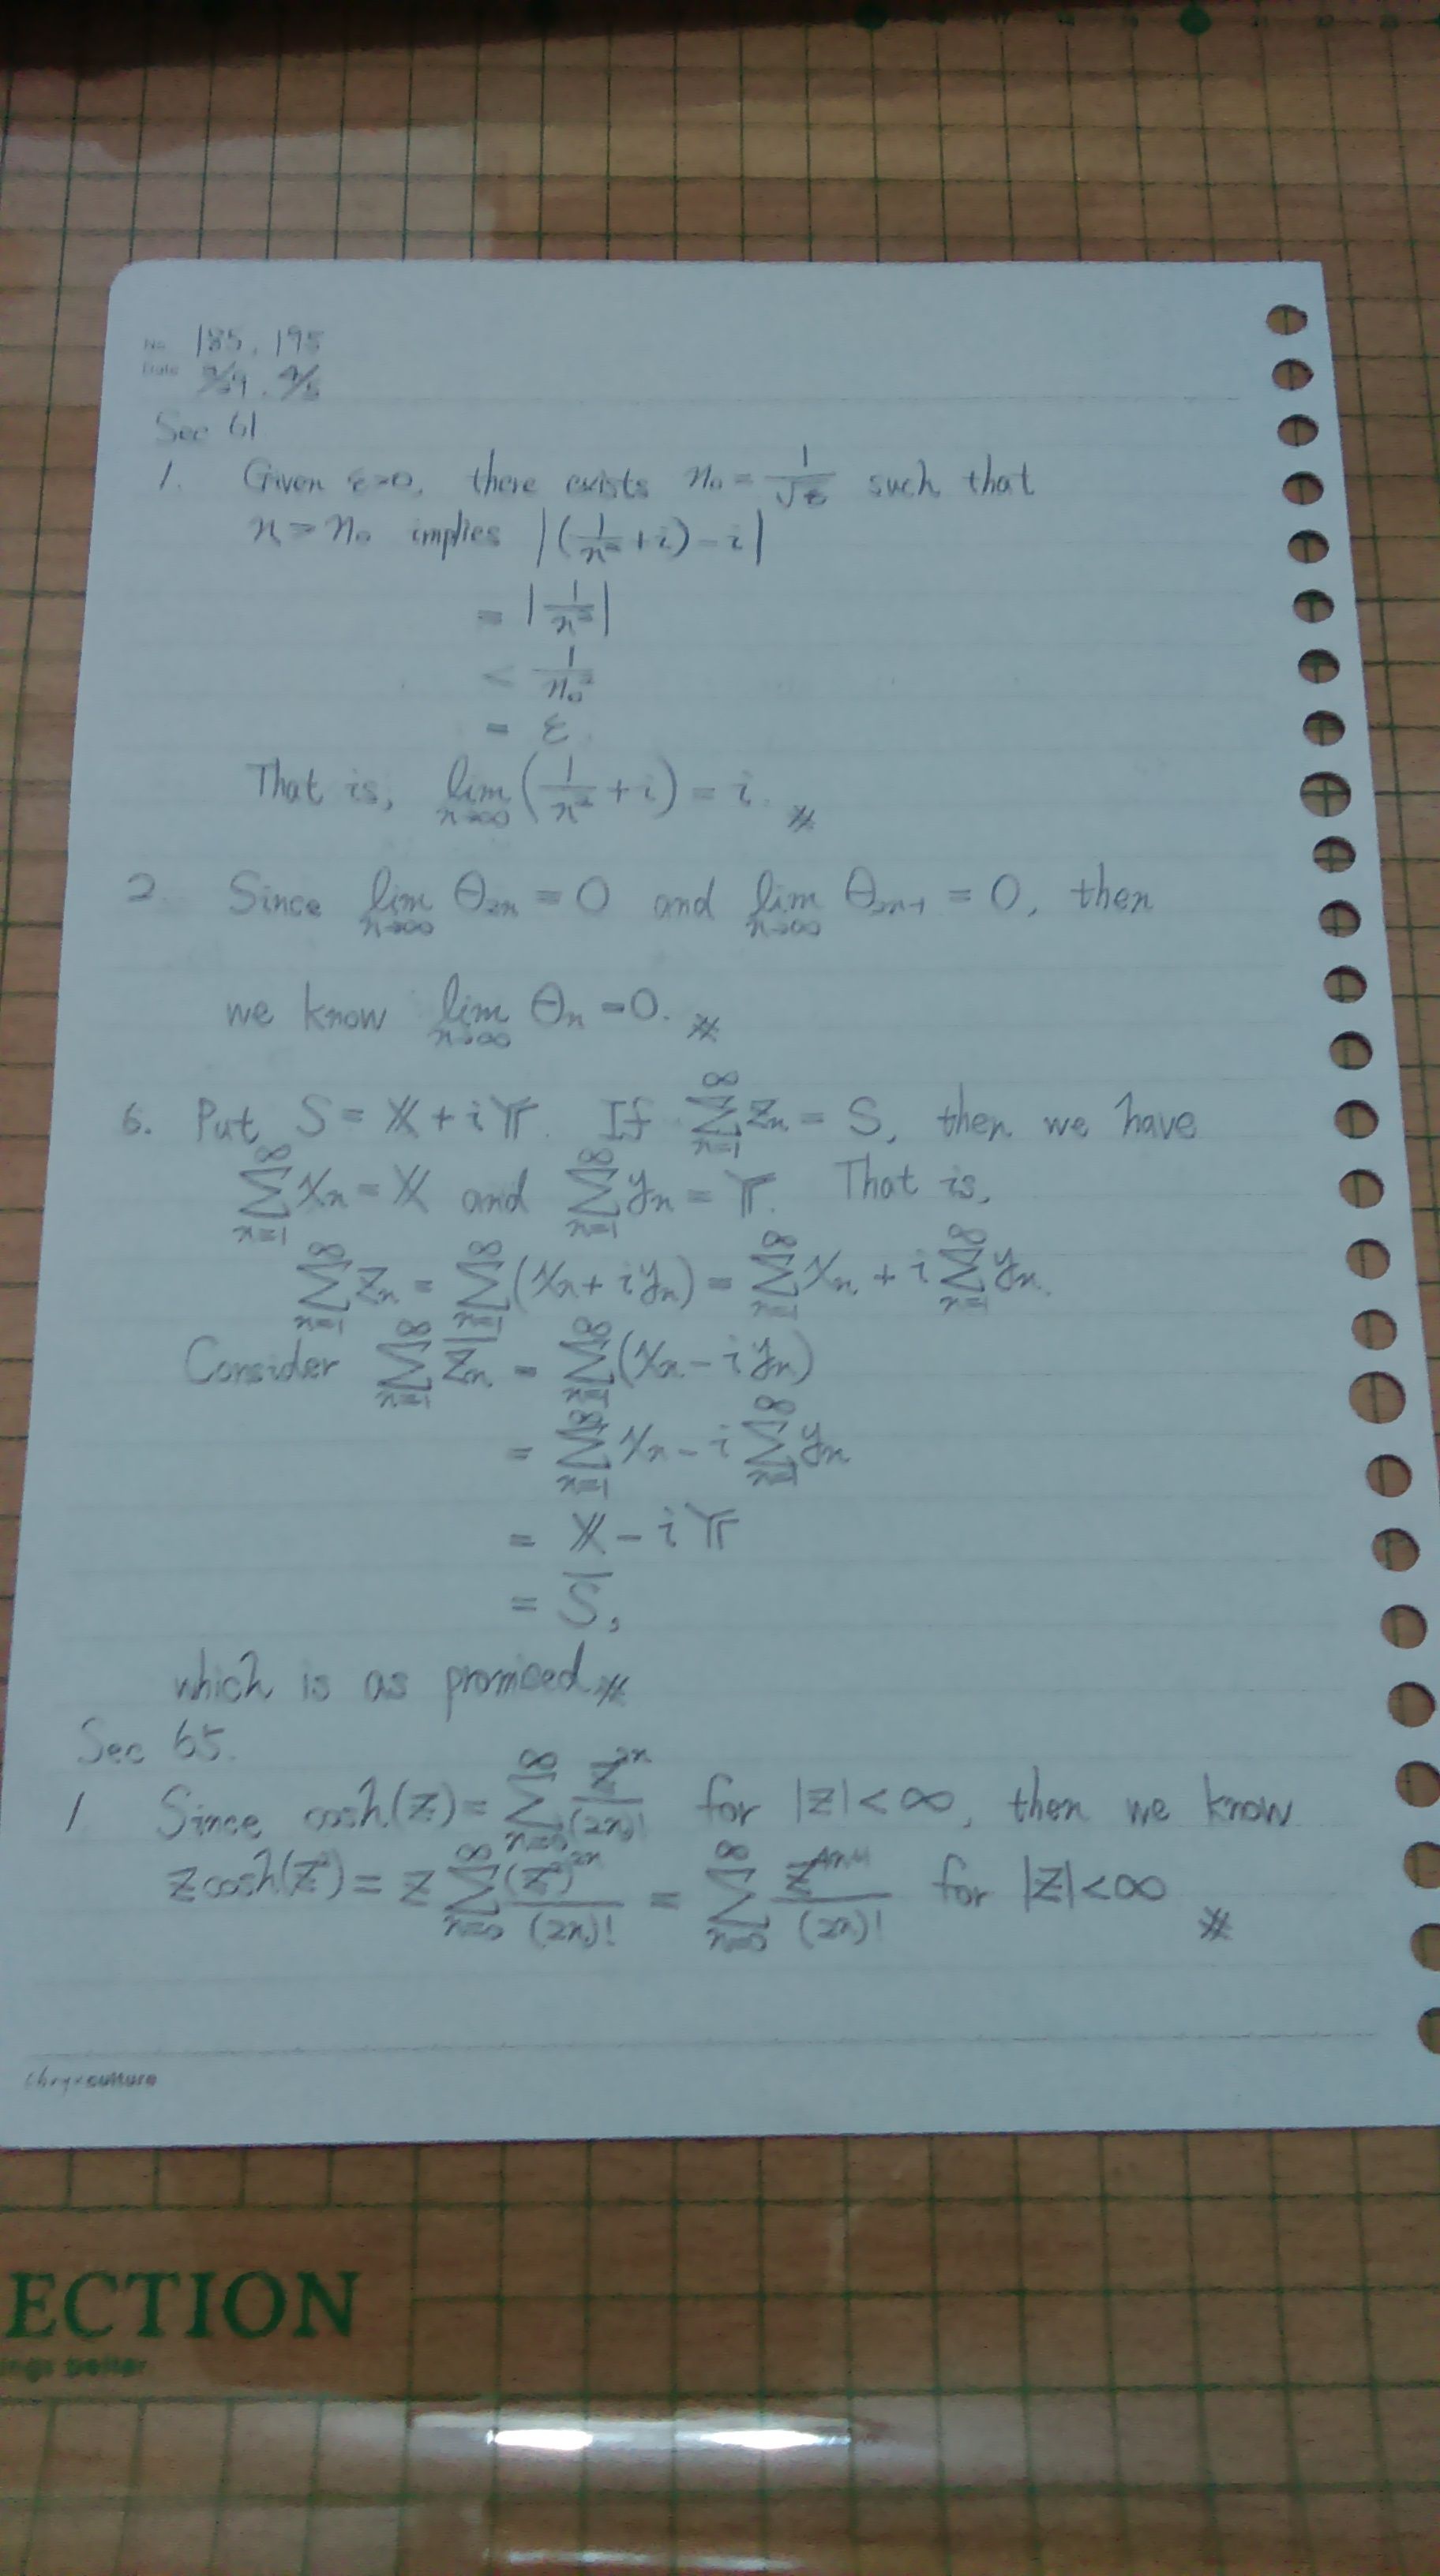 No. 185, 195
Date
Sec 61
1. Given ε>0, there exists n₀ = 1/√ε such that
n > n₀ implies |(1/n² + i) - i|
= |1/n²|
< 1/n₀²
= ε.
That is, lim_{n→∞} (1/n² + i) = i. ※
2. Since lim_{n→∞} Θ₂ₙ = 0 and lim_{n→∞} Θ₂ₙ₋₁ = 0, then
we know lim_{n→∞} Θₙ = 0. ※
6. Put S = X + iY. If ∑_{n=1}^∞ zₙ = S, then we have
∑_{n=1}^∞ xₙ = X and ∑_{n=1}^∞ yₙ = Y. That is,
∑_{n=1}^∞ zₙ = ∑_{n=1}^∞ (xₙ + iyₙ) = ∑_{n=1}^∞ xₙ + i∑_{n=1}^∞ yₙ.
Consider ∑_{n=1}^∞ z̄ₙ = ∑_{n=1}^∞ (xₙ - iyₙ)
= ∑_{n=1}^∞ xₙ - i∑_{n=1}^∞ yₙ
= X - iY
= S̄,
which is as promised. ※
Sec 65.
1 Since cosh(z) = ∑_{n=0}^∞ z²ⁿ/(2n)! for |z| < ∞, then we know
z cosh(z²) = z ∑_{n=0}^∞ (z²)²ⁿ/(2n)! = ∑_{n=0}^∞ z⁴ⁿ⁺¹/(2n)! for |z| < ∞ ※
ECTION